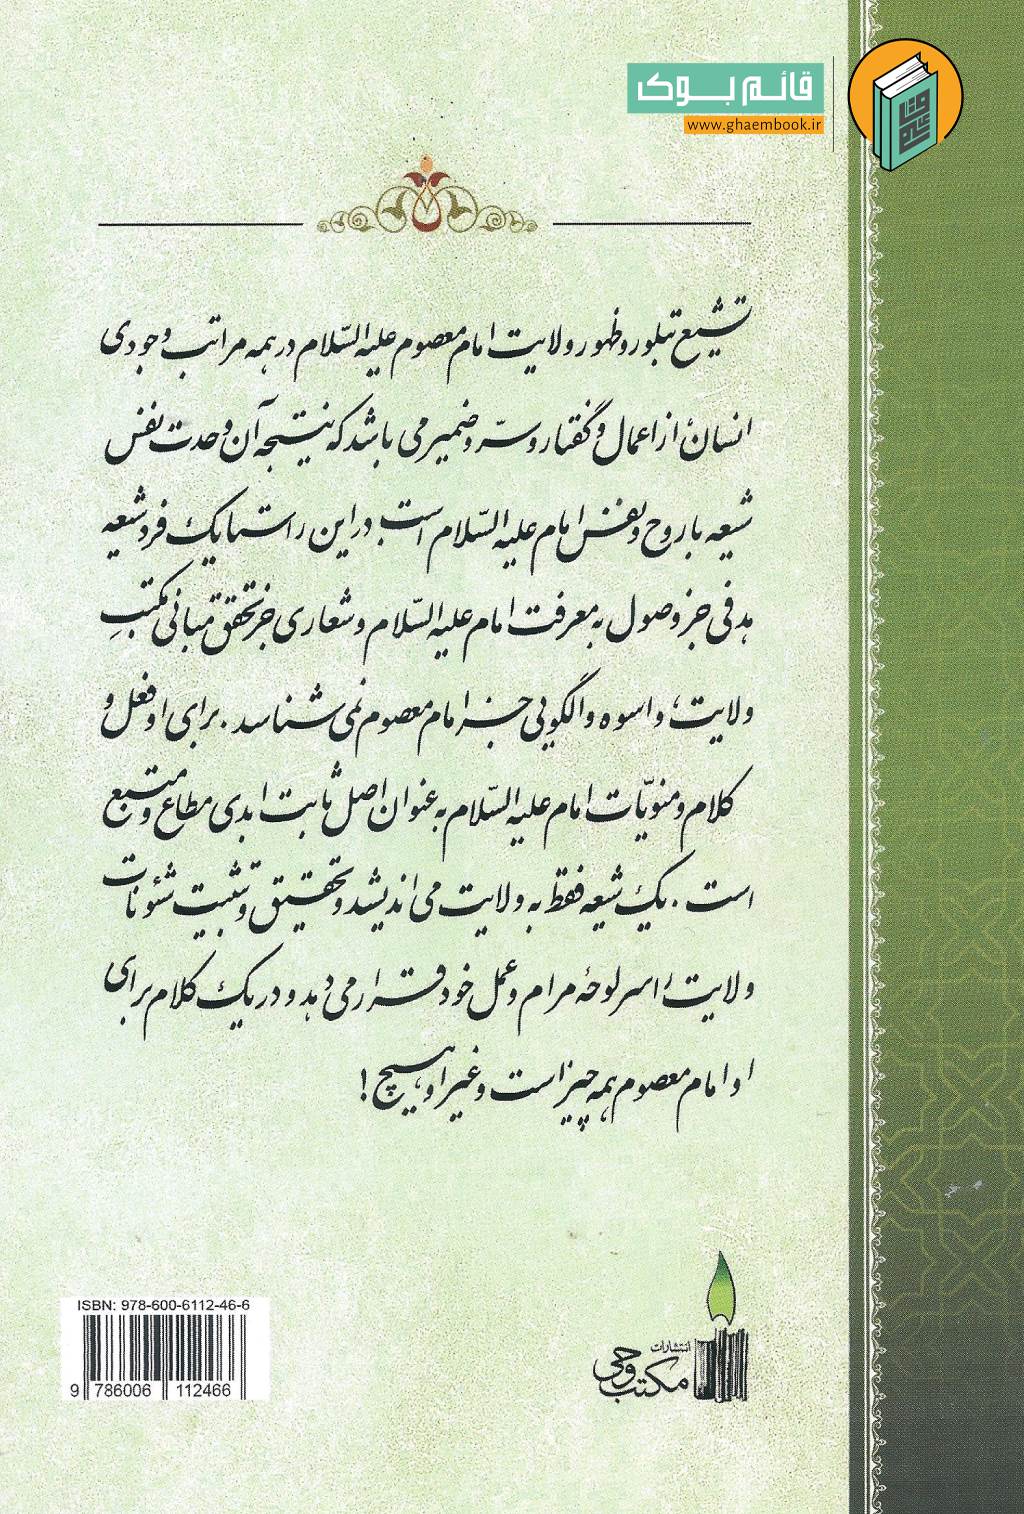 قائم بوک
www.ghaembook.ir
تشیّع تبلور و ظهور ولایت امام معصوم علیه السّلام در همه مراتب وجودی
انسان از اعمال و گفتار و سرّ و ضمیر می باشد که نتیجه آن وحدت نفس
شیعه با روح و نفس امام علیه السّلام است در این راستا یک فرد شیعه
هدفی جز وصول به معرفت امام علیه السّلام و شعاری جز تحقق مبانی مکتبِ
ولایت، و اسوه و الگویی جز امام معصوم نمی شناسد. برای او فعل و
کلام و منویّات امام علیه السّلام به عنوان اصل ثابت ابدی مطاع و متّبع
است. یک شیعه فقط به ولایت می اندیشد و تحقیق و تثبیت شئونات
ولایت را سرلوحۀ مرام و عمل خود قرار می دهد و در یک کلام برای
او امام معصوم همه چیز است و غیر او، هیچ!
انتشارات
مکتب وحی
ISBN: 978-600-6112-46-6
9 786006 112466